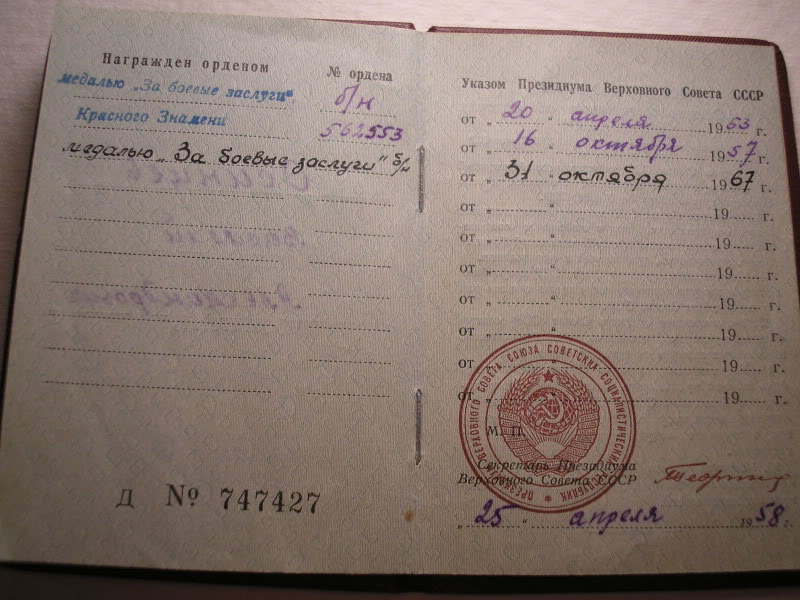 Награжден орденом
№ ордена
медалью „За боевые заслуги“
б/н
Красного Знамени
562553
медалью „За боевые заслуги“ б/н
Д № 747427
Указом Президиума Верховного Совета СССР
от „ 20 “ апреля 1953 г.
от „ 16 “ октября 1957 г.
от „ 31 “ октября 1967 г.
от „ “ 19 г.
от „ “ 19 г.
от „ “ 19 г.
от „ “ 19 г.
от „ “ 19 г.
от „ “ 19 г.
от „ “ 19 г.
ПРЕЗИДИУМ ВЕРХОВНОГО СОВЕТА СОЮЗА СОВЕТСКИХ СОЦИАЛИСТИЧЕСКИХ РЕСПУБЛИК
М. П.
Секретарь Президиума
Верховного Совета СССР
„ 25 “ апреля 1958 г.